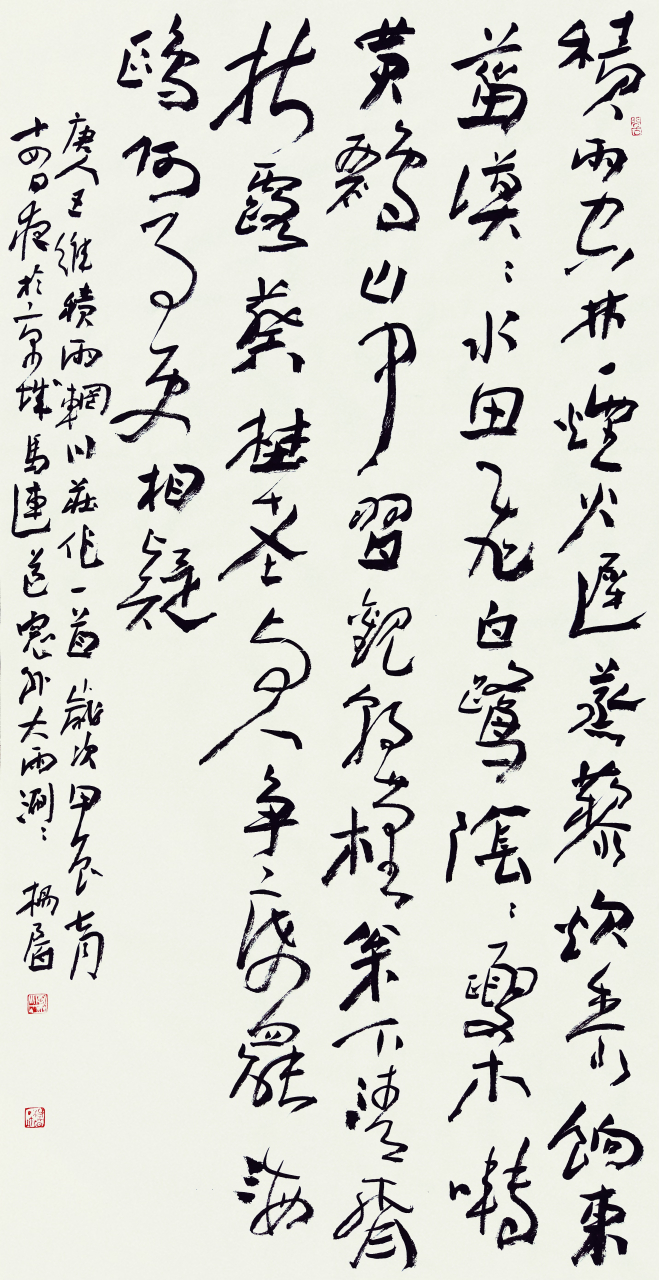 積雨空林煙火遲蒸藜炊黍餉東
菑漠〻水田飛白鷺陰〻夏木囀
黃鸝山中習觀朝槿枩下清齋
折露葵埜老與人爭席罷海
鷗何事更相疑
唐人王維積雨輞川莊作一首歲次甲辰七月
十四日夜於京城馬連道窗外大雨